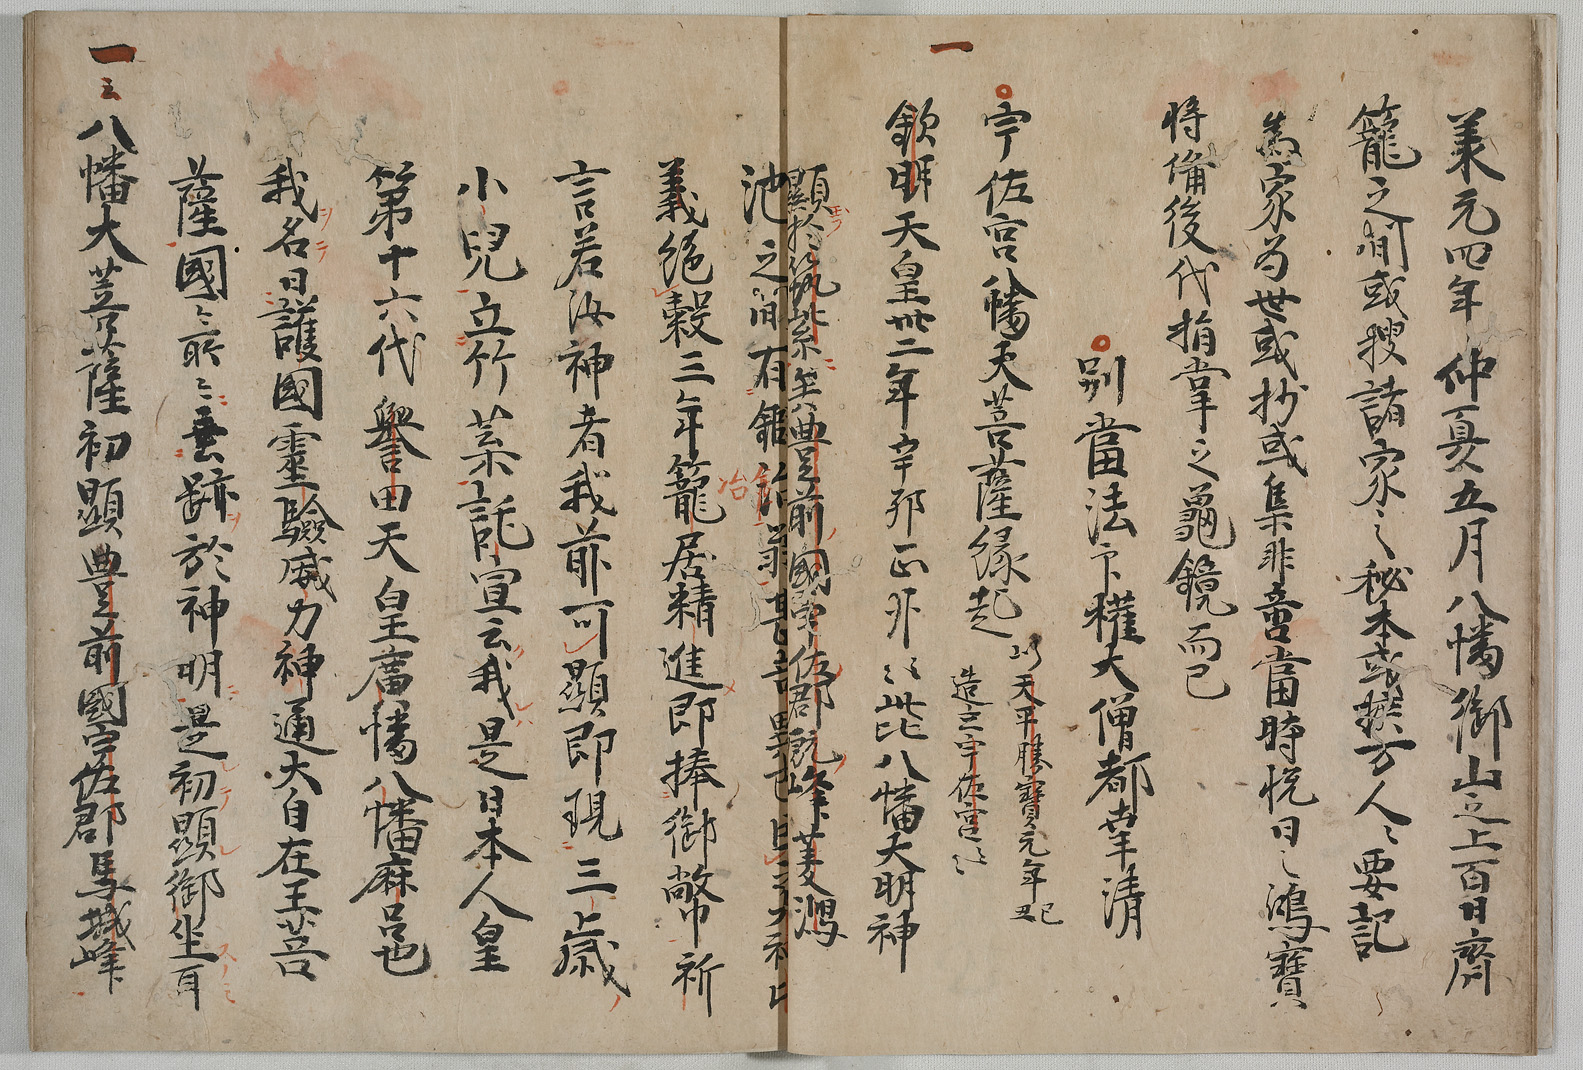 兼元四年仲夏五月八幡御山之上百日齋
籠之間或捜諸家之秘本或撰万人之要記
為家為世或抄或集非啻當時悦目之鴻寶
将備後代指掌之龜鏡而已
別當法印權大僧都幸清
一
宇佐宮八幡大菩薩縁起
以天平勝寶元年己丑
造立宇佐宮云云
欽明天皇卅二年辛卯正月云云此八幡大明神
顯於筑紫矣豊前國宇佐郡厩峰菱潟
池之間有鍛冶翁甚
冶
義絶穀三年籠居精進即捧御幣祈
言若汝神者我前可顯即現三歳
小兒立竹葉託宣云我是日本人皇
第十六代譽田天皇廣幡八幡麻呂也
我名曰護國靈驗威力神通大自在王菩
薩國々所々垂跡於神明是初顯御坐耳
一
八幡大菩薩初顯豊前國宇佐郡馬城峰